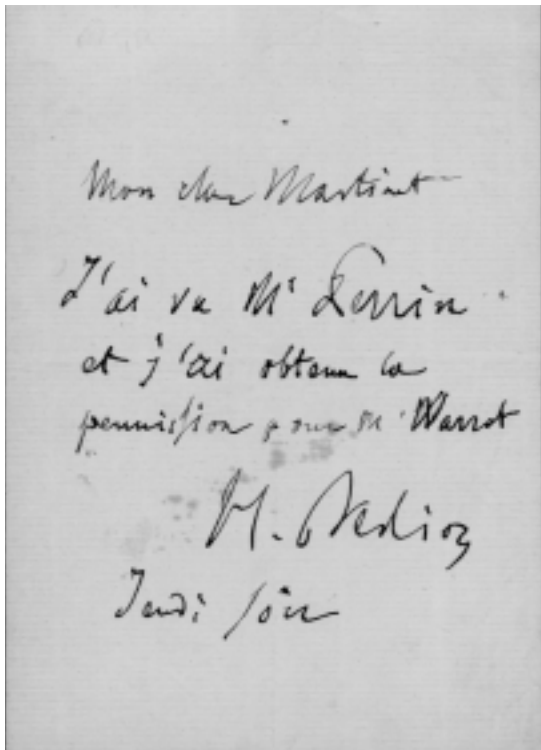 Mon cher Martinet
J'ai vu Mr Perrin
et j'ai obtenu la
permission pour M. Warrot
H. Berlioz
Jeudi soir